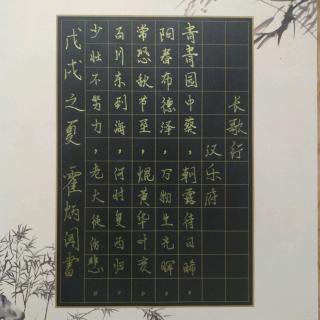 长歌行
汉乐府
青青园中葵，朝露待日晞。
阳春布德泽，万物生光晖。
常恐秋节至，焜黄华叶衰。
百川东到海，何时复西归。
少壮不努力，老大徒伤悲。
戊戌之夏 霍炳阁书